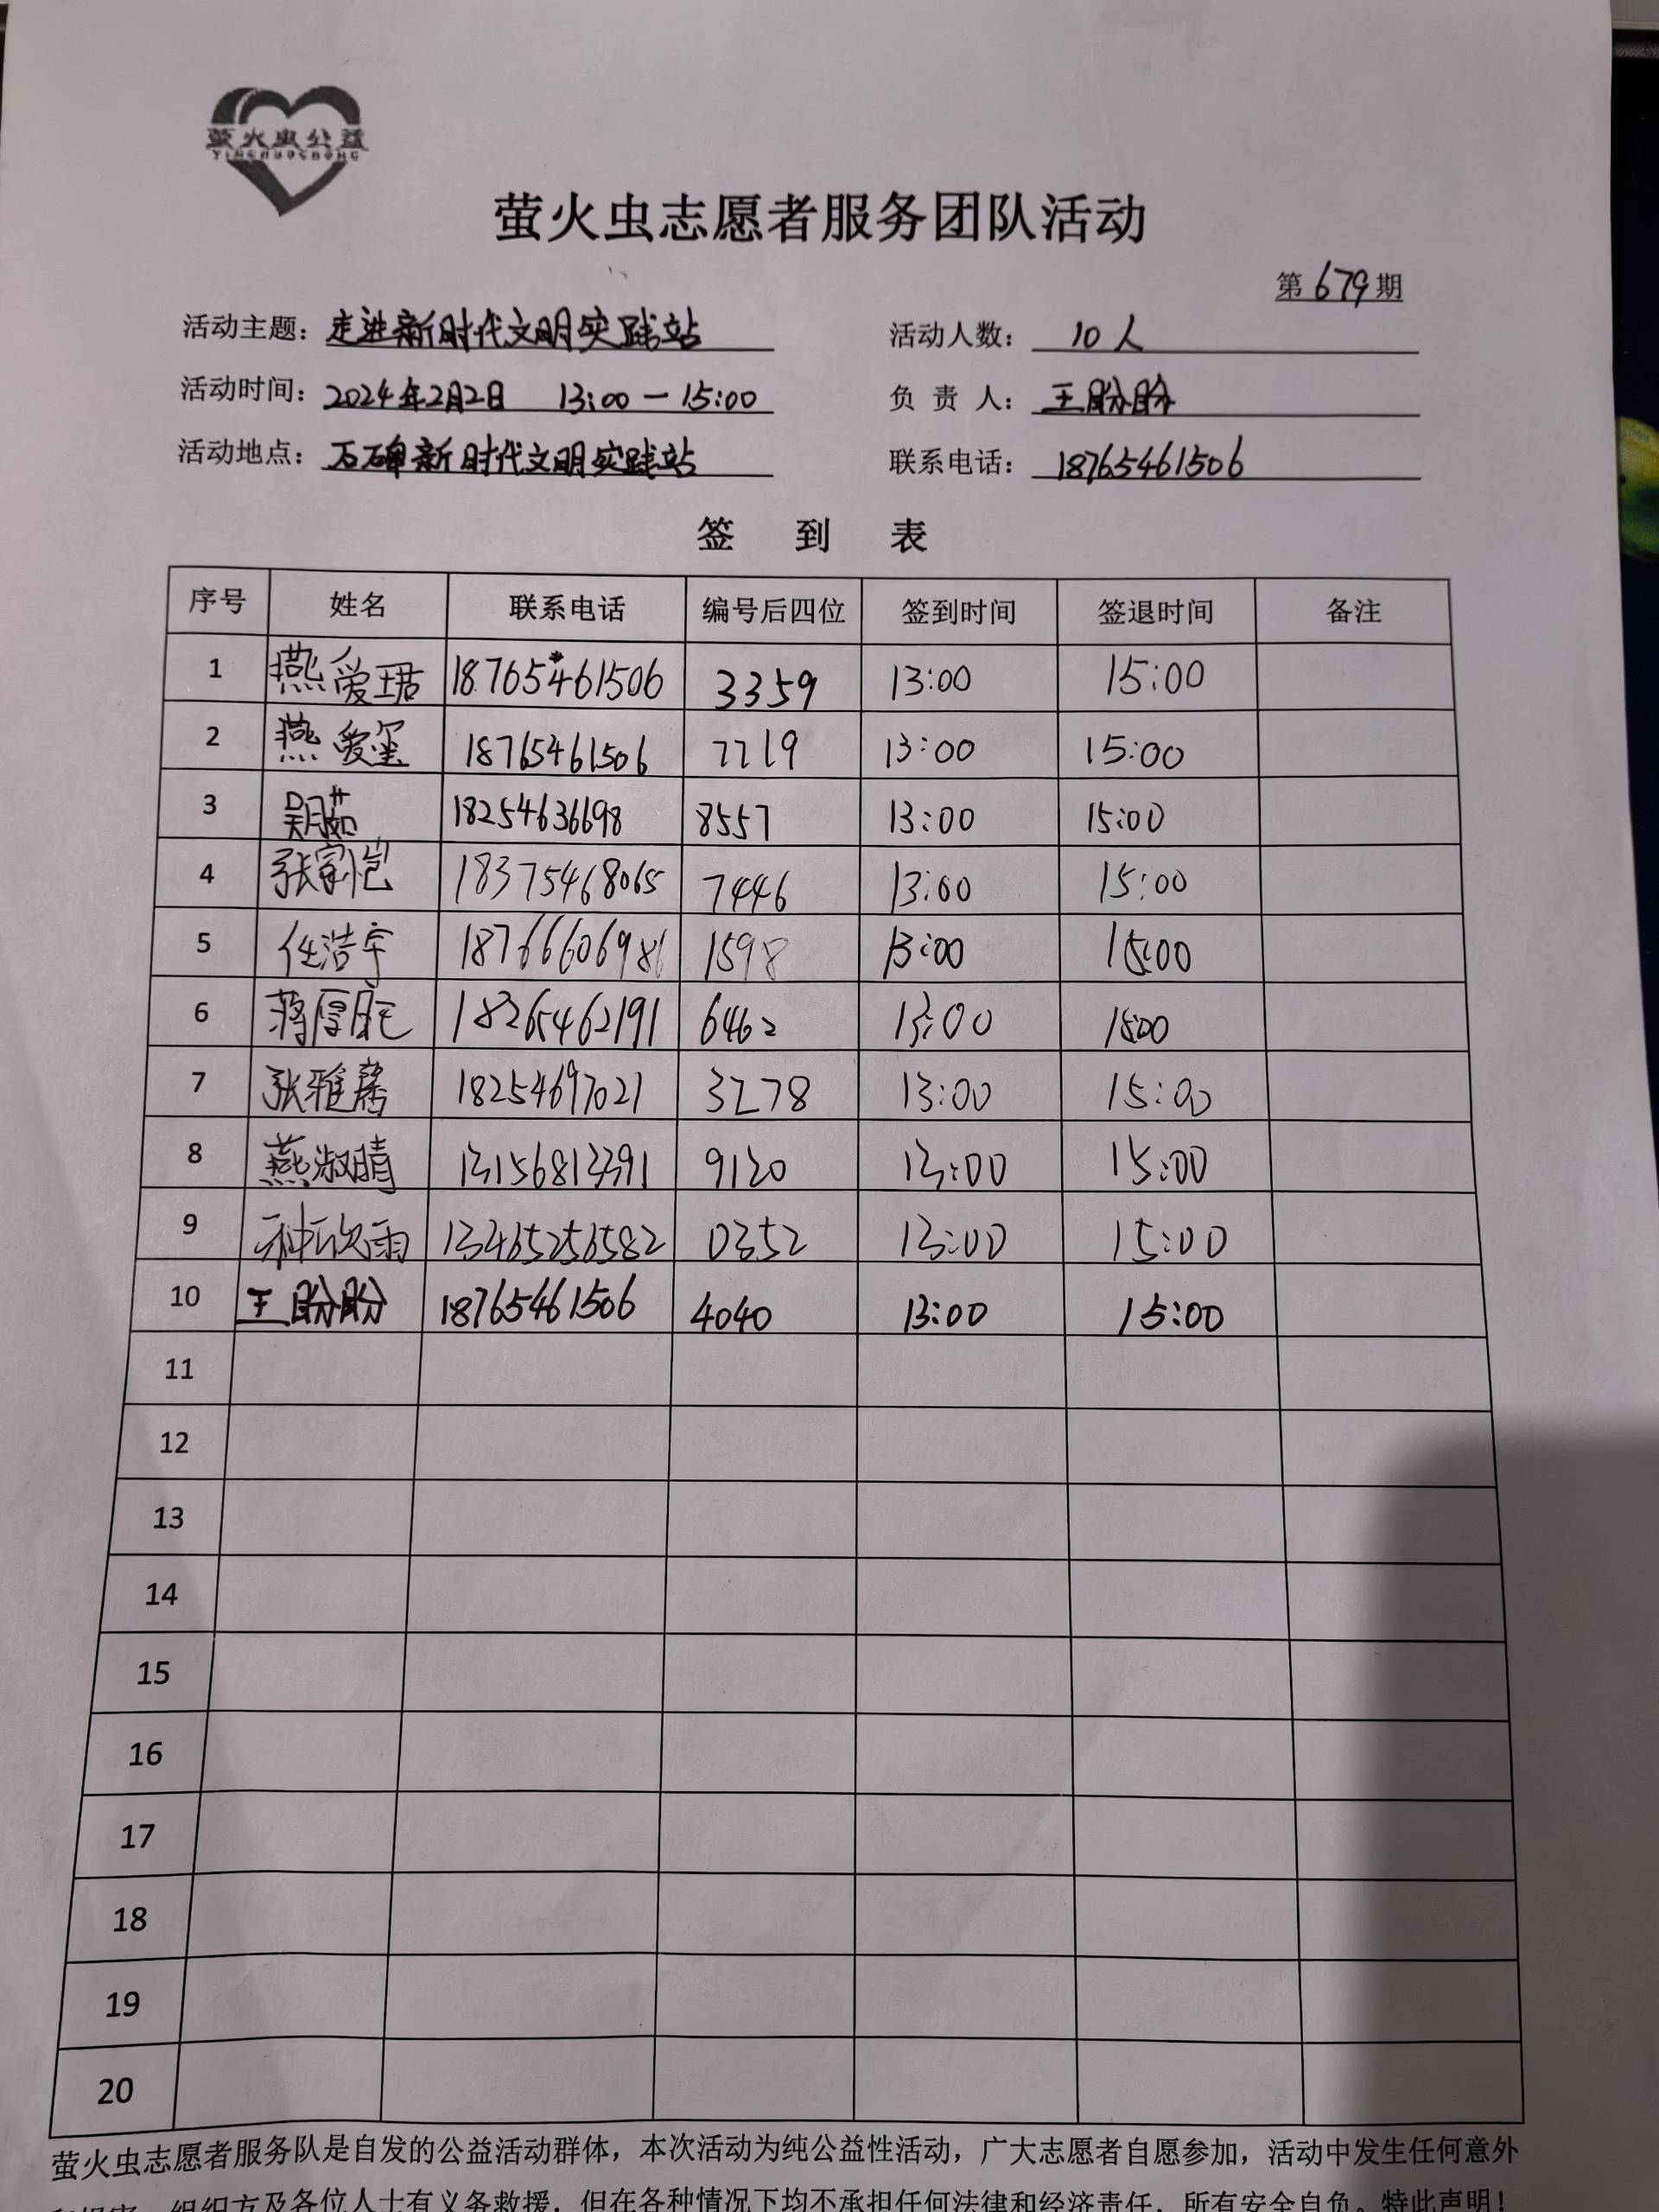 萤火虫公益
YINGHUOCHONG
萤火虫志愿者服务团队活动
第679期
活动主题：走进新时代文明实践站 活动人数：10人
活动时间：2024年2月2日 13:00—15:00 负责人：王盼盼
活动地点：石碑新时代文明实践站 联系电话：18765461506
签到表
序号 姓名 联系电话 编号后四位 签到时间 签退时间 备注
1 燕爱珺 18765461506 3359 13:00 15:00
2 燕爱玺 18765461506 7719 13:00 15:00
3 18254636698 8557 13:00 15:00
4 张家恺 18375468065 7446 13:00 15:00
5 任浩宇 18766606986 1598 13:00 15:00
6 蒋厚 18265462191 6462 13:00 15:00
7 张雅馨 18254697021 3278 13:00 15:00
8 燕淑晴 13156813391 9120 13:00 15:00
9 种欣雨 13465256582 0352 13:00 15:00
10 王盼盼 18765461506 4040 13:00 15:00
11
12
13
14
15
16
17
18
19
20
萤火虫志愿者服务队是自发的公益活动群体，本次活动为纯公益性活动，广大志愿者自愿参加，活动中发生任何意外
组织方及各位人士有义务救援，但在各种情况下均不承担任何法律和经济责任，所有安全自负。特此声明！